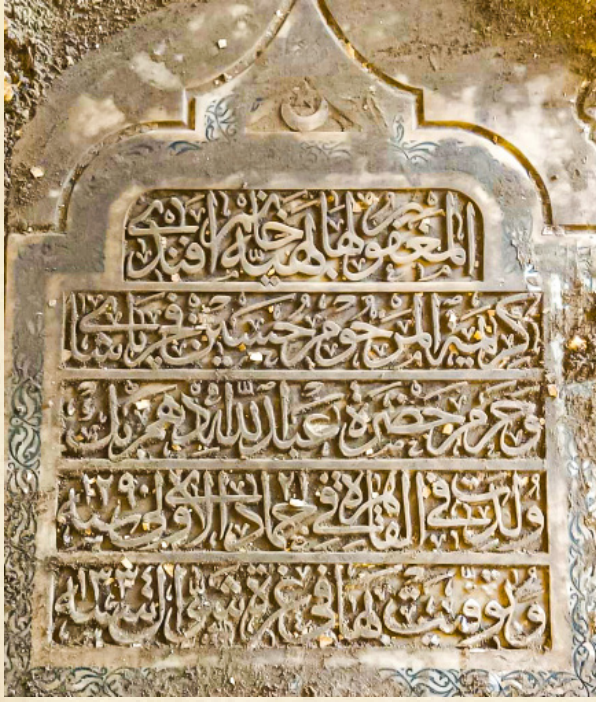 المغفور لها بهية خانم افندي
كريمة المرحوم حسين فخري باشا
وحرم حضرة عبد الله
ولدت في القاهرة في ٢ جمادى الاولى سنة ١٢٩٠
وتوفيت بها في غرة شوال سنة